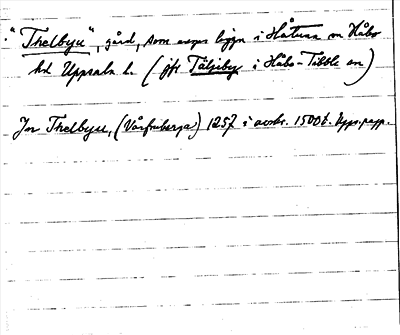 "Thelbyu", gård, som anges ligga i Håtuna sn Håbo
hd Uppsala l. (jfr Täljeby i Håbo-Tibble sn)
In Thelbyu, (Vårfruberga) 1257 i avskr. 1500t. Upps. papp.